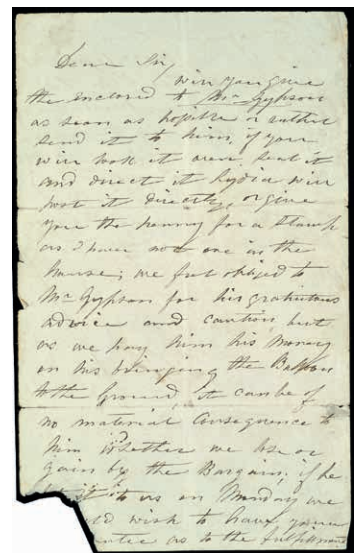 Dear Sir,
will you give
the enclosed to Mr Gypson
as soon as possible or rather
send it to him, if you
will look it over, seal it
and direct it Lydia will
post it directly, or give
you the penny for a stamp
as I have not one in the
house; we feel obliged to
Mr Gypson for his gratuitous
advice and caution, but
as we pay him his money
on his bringing the Balloon
to the Ground, it can be of
no material consequence to
him whether we lose or
gain by the Bargain; if he
it to us on Monday we
wish to have your
as to the fulfilment